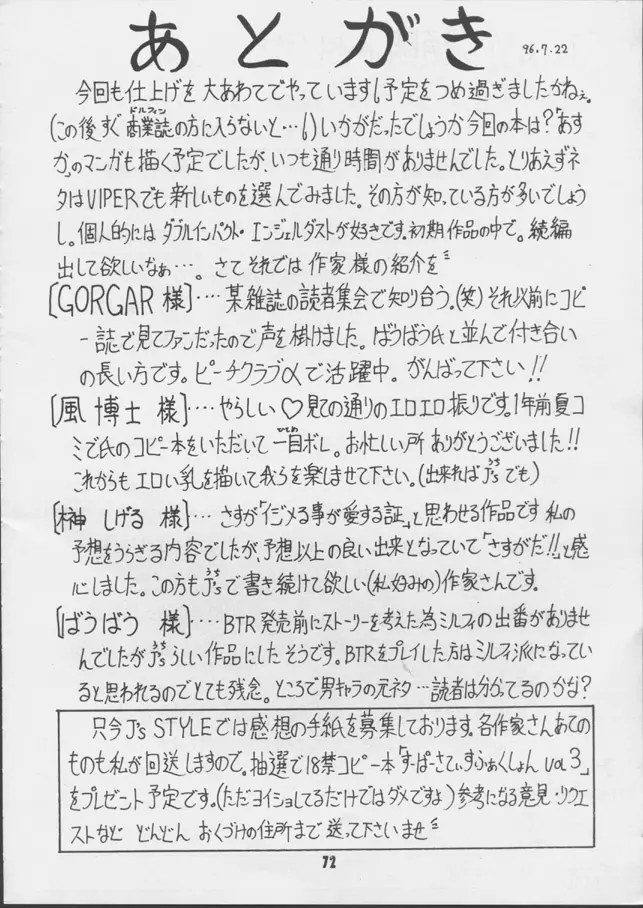 あとがき 96.7.22
今回も仕上げを大あわてでやっています!予定をつめ過ぎましたかねぇ。
ドルフィン
(この後すぐ商業誌の方に入らないと…!)いかがだったでしょうか今回の本は?「あす
か」のマンガも描く予定でしたが、いつも通り時間がありませんでした。とりあえずネ
タはVIPERでも新しいものを選んでみました。その方が知っている方が多いでしょう
し。個人的にはダブルインパクト・エンジェルダストが好きです。初期作品の中で。続編
出して欲しいなぁ…。さてそれでは作家様の紹介を
[GORGAR様]‥‥某雑誌の読者集会で知り合う。(笑)それ以前にコピ
ー誌で見てファンだったので声を掛けました。ばうばう氏と並んで付き合い
の長い方です。ピーチクラブαで活躍中。がんばって下さい!!
[風博士様]‥‥やらしい♡見ての通りのエロエロ振りです。1年前夏コ
ひとめ
ミで氏のコピー本をいただいて一目ボレ。お忙しい所ありがとうございました!!
うち
これからもエロい乳を描いて我らを楽しませて下さい。(出来ればJ'sでも)
[榊しげる様]‥‥さすが「イジメる事が愛する証」と思わせる作品です私の
予想をうらぎる内容でしたが、予想以上の良い出来となっていて「さすがだ!!」と感
うち
心しました。この方もJ'sで書き続けて欲しい(私好みの)作家さんです。
[ばうばう様]‥‥BTR発売前にストーリーを考えた為ミルフィの出番がありませ
うち
んでしたがJ'sらしい作品にしたそうです。BTRをプレイした方はミルフィ派になってい
ると思われるのでとても残念。ところで男キャラの元ネタ…読者は分かってるのかな?
只今J's STYLEでは感想の手紙を募集しております。各作家さんあての
ものも私が回送しますので。抽選で18禁コピー本「すーぱーさてぃすふぁくしょんvol3」
をプレゼント予定です。(ただヨイショしてるだけではダメですよ)参考になる意見・リクエ
ストなどどんどんおくづけの住所まで送って下さいませ
72